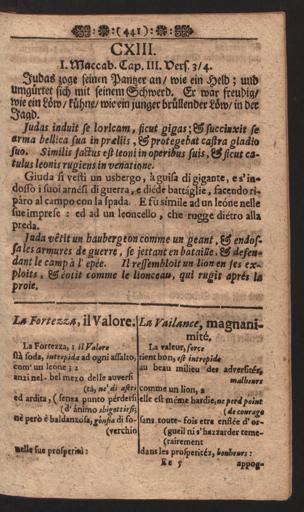 (441)
CXIII.
I. Maccab. Cap. III. Vers. 3/4.
Judas zoge seinen Pantzer an/ wie ein Held; und
umgürtet sich mit seinem Schwerd. Er war freudig/
wie ein Löw/ kühne/ wie ein junger brüllender Löw/ in der
Jagd.
Judas induit se loricam, sicut gigas; & succinxit se
arma bellica sua in præliis, & protegebat castra gladio
suo. Similis factus est leoni in operibus suis, & sicut ca-
tulus leonis rugiens in venatione.
Giuda si vestì un usbergo, à guisa di gigante, e s'in-
dossò i suoi arnesi di guerra, e diede battaglie, facendo ri-
paro al campo con la spada. E fù simile ad un leóne nelle
sue imprese : ed ad un leoncello, che rugge diétro alla
preda.
Juda vêtit un haubergeon comme un geant, & endos-
sa les armures de guerre, se jettant en bataille, & defen-
dant le camp à l'epée. Il ressembloit un lion en ses ex-
ploits, & étoit comme le lionceau, qui rugit aprés la
proie.
La Fortezza, il Valore.
La Fortezza, : il Valore
stà soda, intrepida ad ogni assalto,
com' un leone ; 2
anzi nel bel mezo delle auversi
(tà, ne' di astri
ed ardita, ( senza punto pérdersi
(d'ánimo sbigottirsi;
ne però è baldanzósa, gónfia di so-
(verchio
nelle sue prosperità :
La Vaillance, magnani-
mité,
La valeur, force
tient bon, est intrepide
au beau milieu des adversités,
malheurs
comme un lion, 2
elle est méme hardie, ne perd point
(de courage
sans toute-fois etre enflée d'or-
(gueil ni s'hazzarder teme-
(rairement
dans les prosperités, bonheurs :
Ee 5
appog-